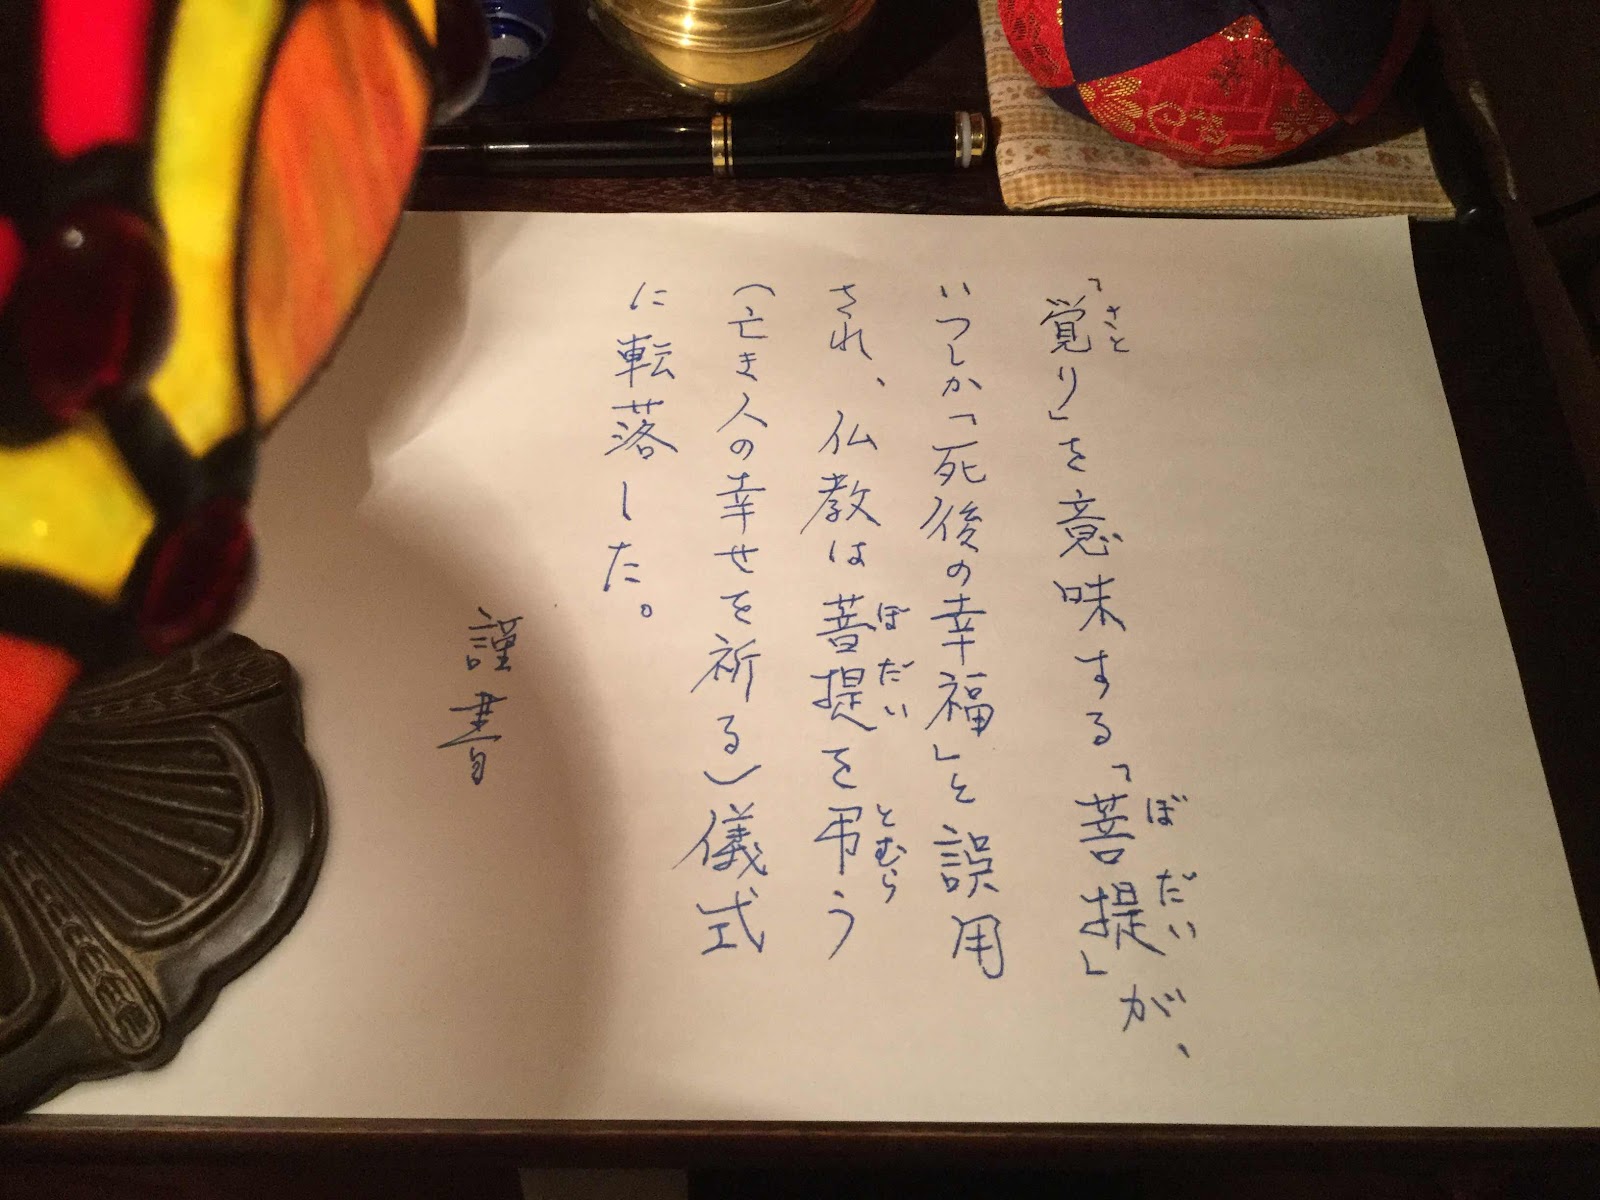 「覚り」を意味する「菩提」が、
いつしか「死後の幸福」と誤用
され、仏教は菩提を弔う
(亡き人の幸せを祈る)儀式
に転落した。
謹書
さと
ぼだい
ぼだい
とむら